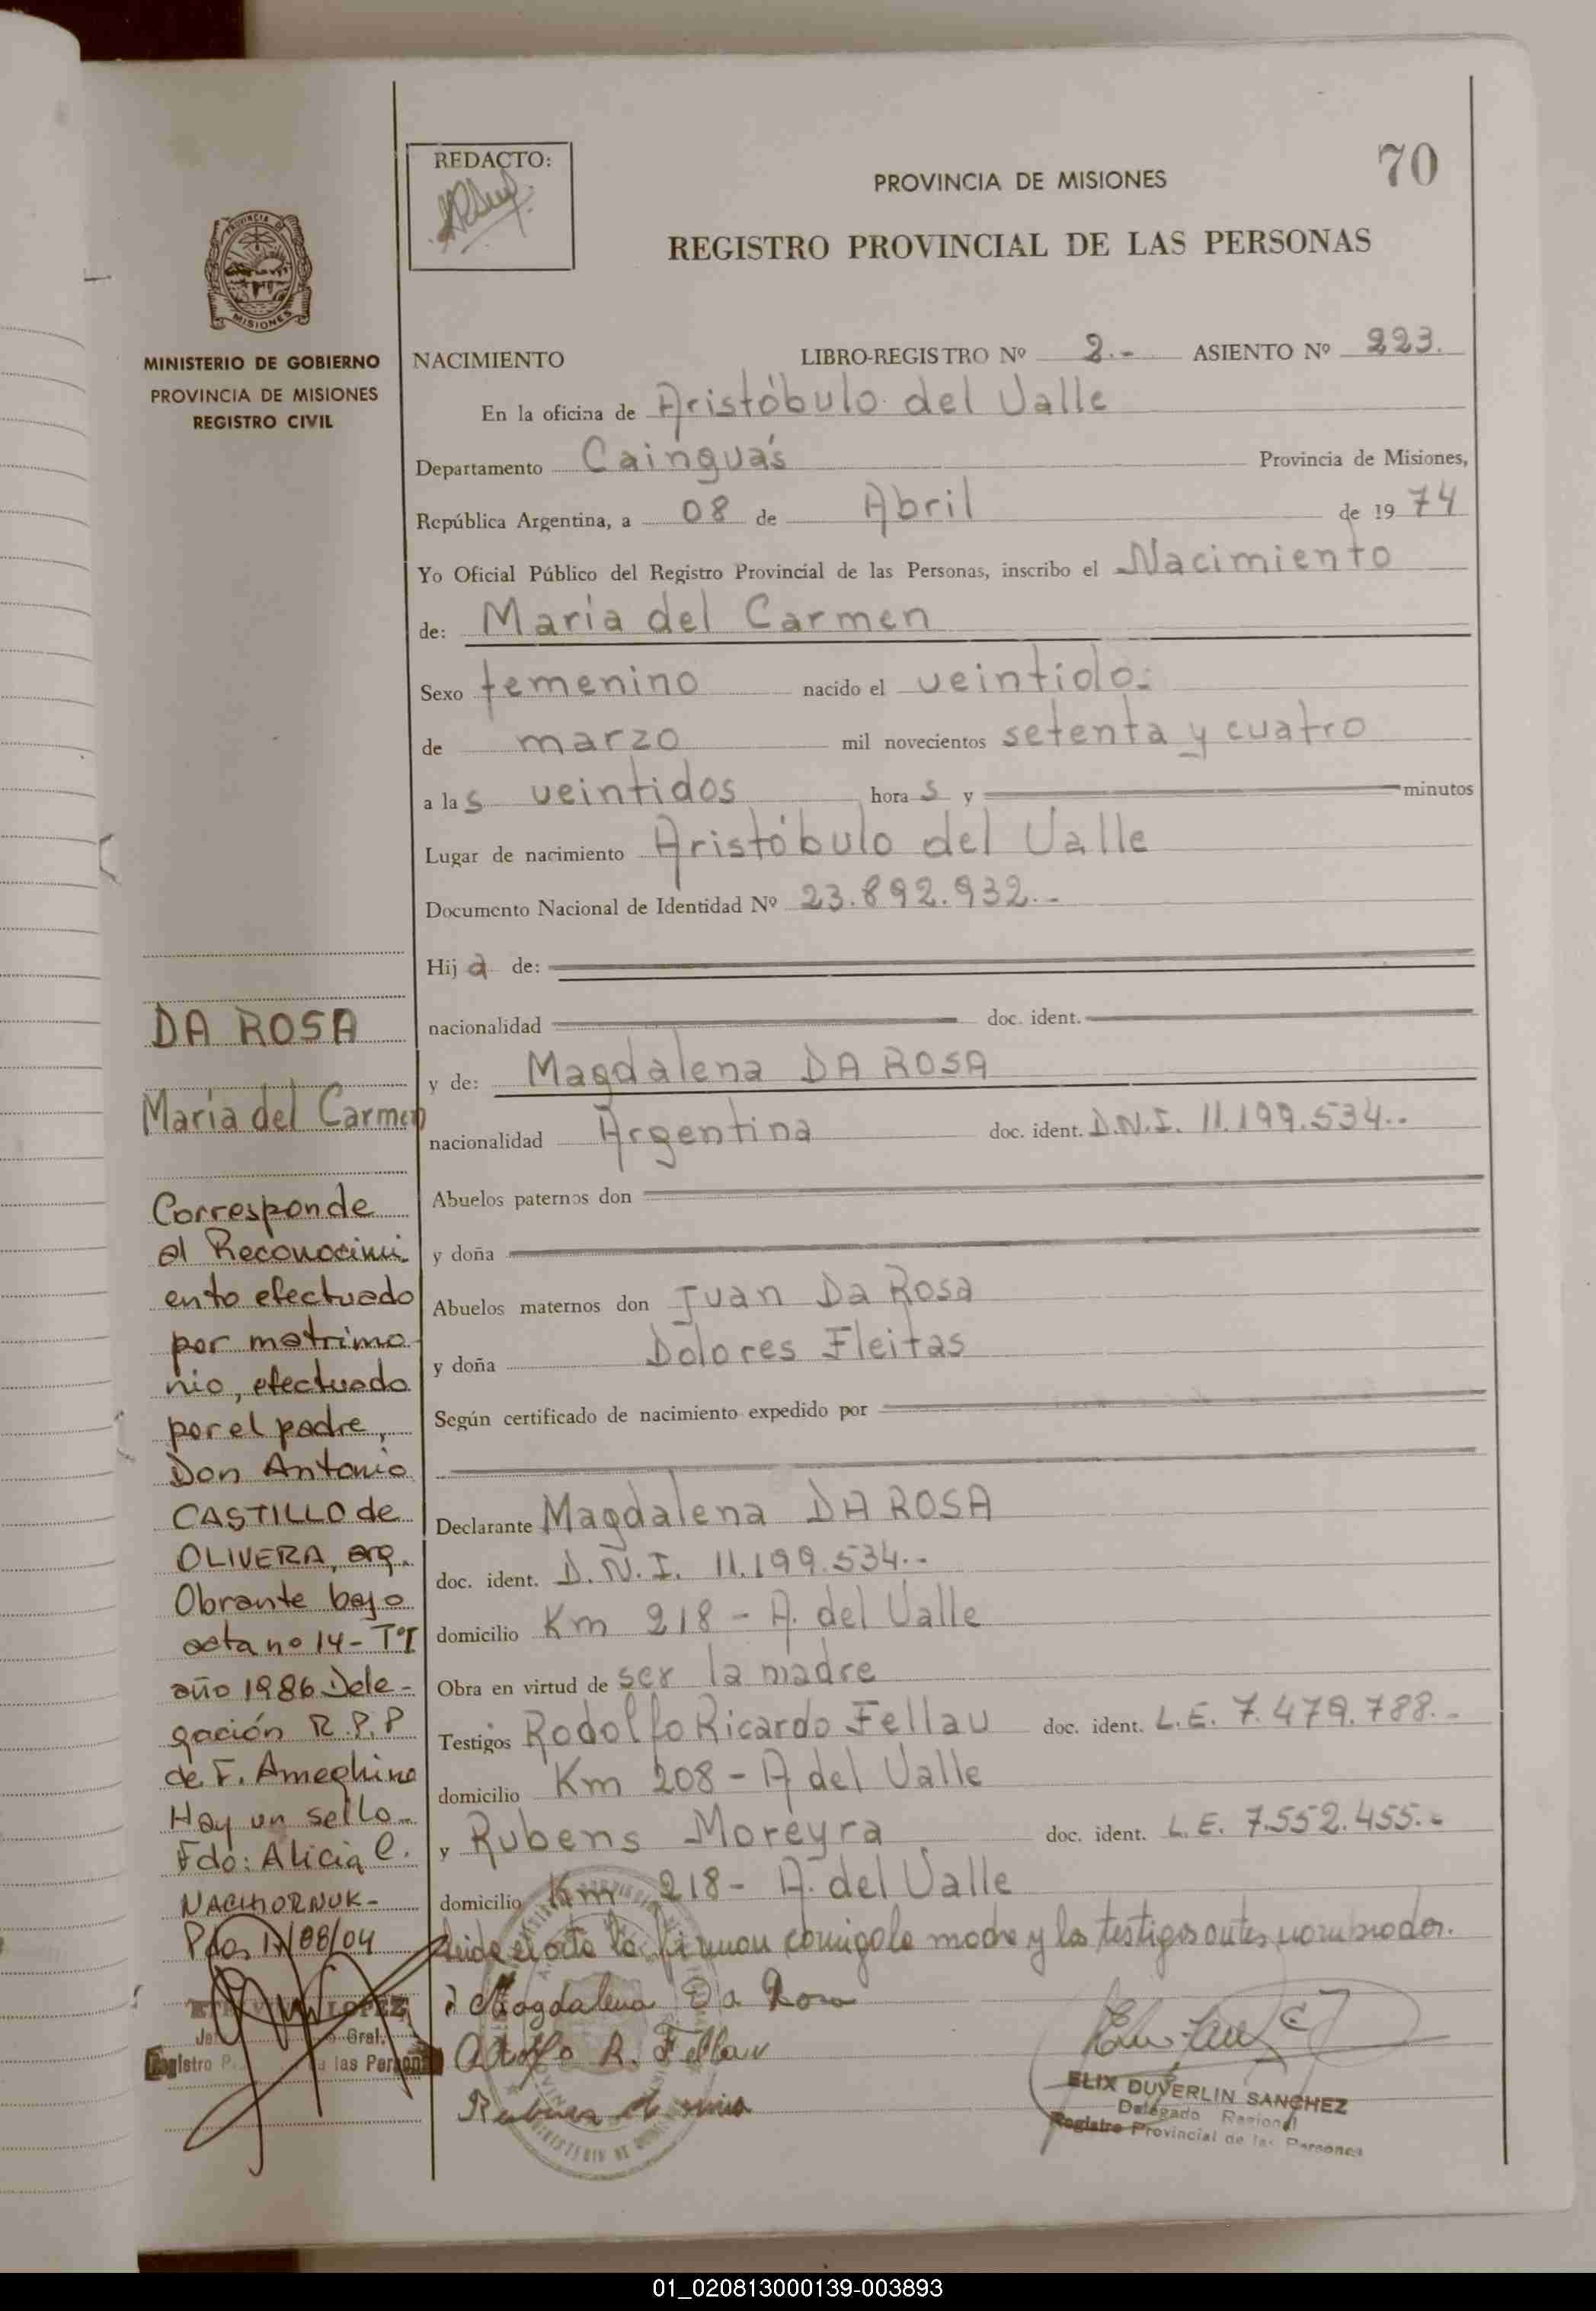 70
REDACTO:
PROVINCIA DE MISIONES
REGISTRO PROVINCIAL DE LAS PERSONAS
PROVINCIA
MISIONES
MINISTERIO DE GOBIERNO
PROVINCIA DE MISIONES
REGISTRO CIVIL
NACIMIENTO LIBRO-REGISTRO Nº 2.- ASIENTO Nº 223.
En la oficina de Aristóbulo del Valle
Departamento Cainguás Provincia de Misiones,
República Argentina, a 08 de Abril de 1974
Yo Oficial Público del Registro Provincial de las Personas, inscribo el Nacimiento
de: María del Carmen
Sexo femenino nacido el veintido.
de marzo mil novecientos setenta y cuatro
a las veintidos horas y minutos
Lugar de nacimiento Aristóbulo del Valle
Documento Nacional de Identidad Nº 23.892.932.-
Hija de:
nacionalidad doc. ident.
y de: Magdalena DA ROSA
nacionalidad Argentina doc. ident. D.N.I. 11.199.534.-
Abuelos paternos don
y doña
Abuelos maternos don Juan Da Rosa
y doña Dolores Fleitas
Según certificado de nacimiento expedido por
Declarante Magdalena DA ROSA
doc. ident. D.N.I. 11.199.534.-
domicilio Km 218 - A. del Valle
Obra en virtud de ser la madre
Testigos Rodolfo Ricardo Fellau doc. ident. L.E. 7.479.788.-
domicilio Km 208 - A del Valle
y Rubens Moreyra doc. ident. L.E. 7.552.455.-
domicilio Km 218 - A. del Valle
el acta la firman conmigo la madre y los testigos antes nombrados.
Magdalena Da Rosa
R. Fellau
ELIX DUVERLIN SANCHEZ
Delegado Regional
Registro Provincial de las Personas
DA ROSA
María del Carmen
Corresponde
al Reconocimi
ento efectuado
por matrimo
nio, efectuado
por el padre,
Don Antonio
CASTILLO de
OLIVERA, arg.
Obrante bajo
acta nº 14 - TºI
año 1986 Dele-
gación R.P.P
de F. Ameghino
Hay un sello-
Fdo: Alicia C.
NACHORNUK-
Pdas 17/08/04
LOPEZ
Gral.
Registro las Personas
01_020813000139-003893